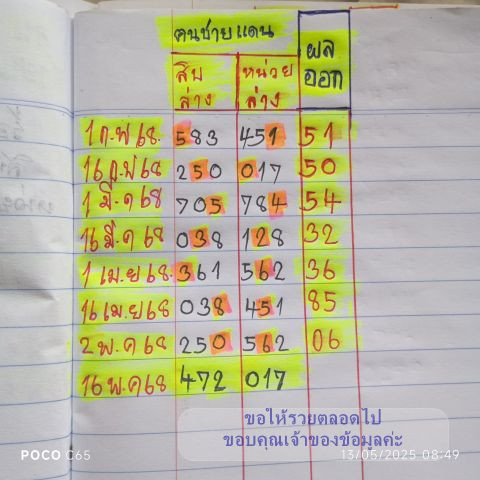 คนชายแดน
สิบล่าง หน่วยล่าง ผลออก
1 ก.พ 68. 583 451 51
16 ก.พ 68 250 017 50
1 มี.ค 68 705 784 54
16 มี.ค 68 038 128 32
1 เม.ย 68. 361 562 36
16 เม.ย 68 038 451 85
2 พ.ค 68 250 562 06
16 พ.ค 68 472 017
ขอให้รวยตลอดไป
ขอบคุณเจ้าของข้อมูลค่ะ
POCO C65 13/05/2025 08:49